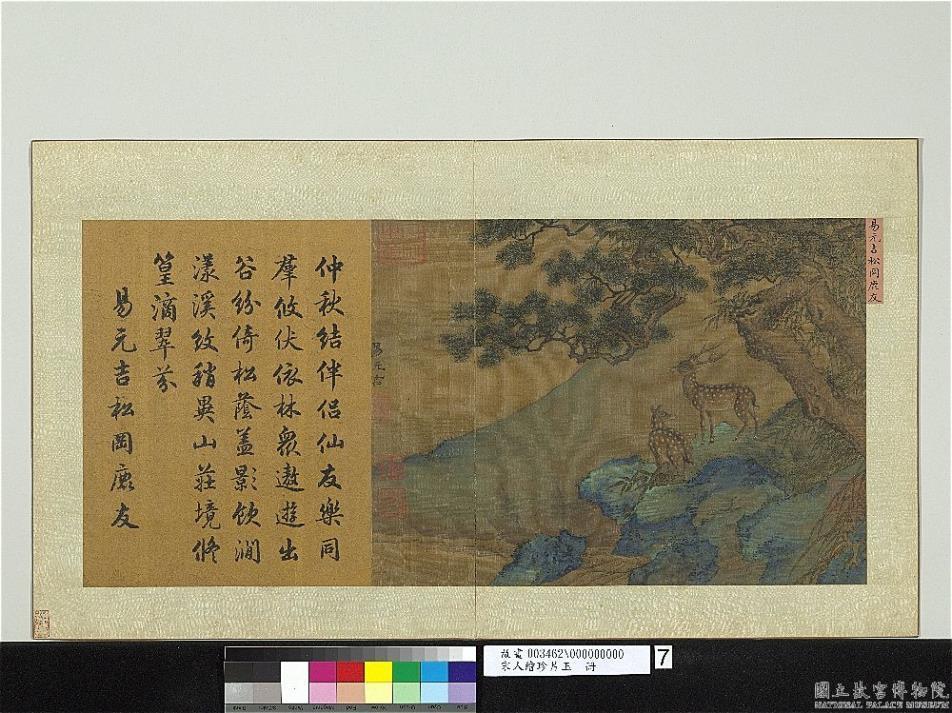 易元吉松岡鹿友
易元吉
仲秋結伴侶仙友樂同
羣攸伏依林衆遨遊出
谷紛倚松蔭蓋影飲澗
漾溪紋稍異山莊境脩
篁滴翠芬
易元吉松岡鹿友
故畫 003462N000000000
宋人繪珍片玉 冊
7
國立故宮博物院
NATIONAL PALACE MUSEUM